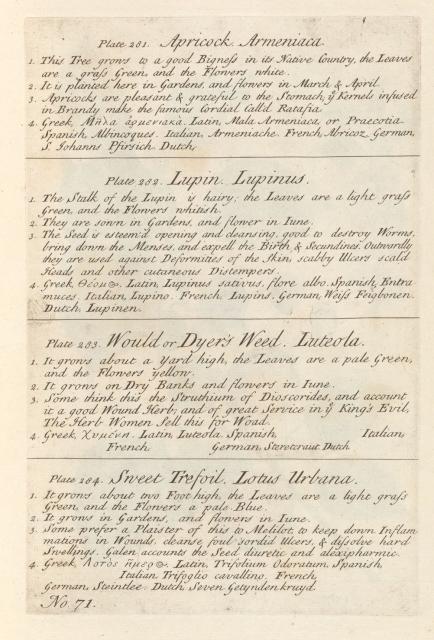 Plate 281. Apricock. Armeniaca.
1. This Tree grows to a good Bigneſs in its Native Country, the Leaves
are a graſs Green, and the Flowers white.
2. It is planted here in Gardens, and flowers in March & April.
3. Apricocks are pleasant & grateful to the Stomach, ẙ Kernels infused
in Brandy make the famous Cordial Call'd Ratafia.
4. Greek, Μῆλα ἀρμενιακὰ. Latin, Mala Armeniaca, or Praecotia
Spanish, Albincoques. Italian, Armeniache. French, Abricoz, German,
S. Johanns Pfirsich. Dutch,
Plate 282. Lupin. Lupinus.
1. The Stalk of the Lupin is hairy, the Leaves are a light graſs
Green, and the Flowers whitish.
2. They are sown in Gardens, and flower in Iune.
3. The Seed is esteem'd opening and cleansing, good to destroy Worms,
bring down the Menses, and expell the Birth & Secundines. Outwardly
they are used against Deformities of the Skin, scabby Ulcers scald
Heads and other cutaneous Distempers.
4. Greek, Latin, Lupinus sativus, flore albo. Spanish, Entra
muces. Italian, Lupino. French, Lupins. German, Weiſs Feigbonen.
Dutch, Lupinen.
Plate 283. Would or Dyer's Weed. Luteola.
1. It grows about a Yard high, the Leaves are a pale Green,
and the Flowers yellow.
2. It grows on Dry Banks and flowers in Iune.
3. Some think this the Struthium of Dioscorides, and account
it a good Wound Herb, and of great Service in ẙ King's Evil,
The Herb Women Sell this for Woad.
4. Greek, Latin, Luteola. Spanish, Italian,
French, German, Sterotcraut. Dutch
Plate 284. Sweet Trefoil. Lotus Urbana.
1. It grows about two Foot high, the Leaves are a light graſs
Green, and the Flowers a pale Blue.
2. It grows in Gardens, and flowers in Iune.
3. Some prefer a Plaister of this to Melilot, to keep down Inflam
mations in Wounds, cleanse foul sordid Ulcers, & diſsolve hard
Swellings. Galen accounts the Seed diuretic and alexipharmic.
4. Greek, Latin, Trifolium Odoratum. Spanish,
Italian Trifoglio cavallino. French,
German, Steintlee. Dutch Seven Getyndenkruyd.
No. 71.